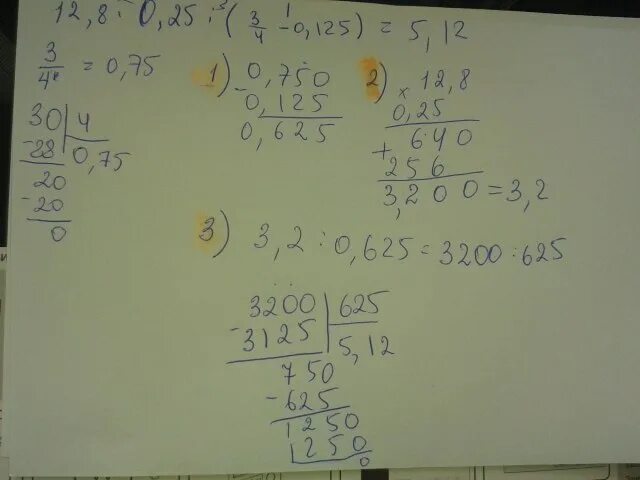 12,8 · 0,25 : (3/4 - 0,125) = 5,12
3/4 = 0,75
30 | 4
-28 | 0,75
20
-20
0
1) 0,750
- 0,125
0,625
2) 12,8
× 0,25
+ 640
256
3,200 = 3,2
3) 3,2 : 0,625 = 3200 : 625
3200 | 625
-3125 | 5,12
750
-625
1250
1250
0